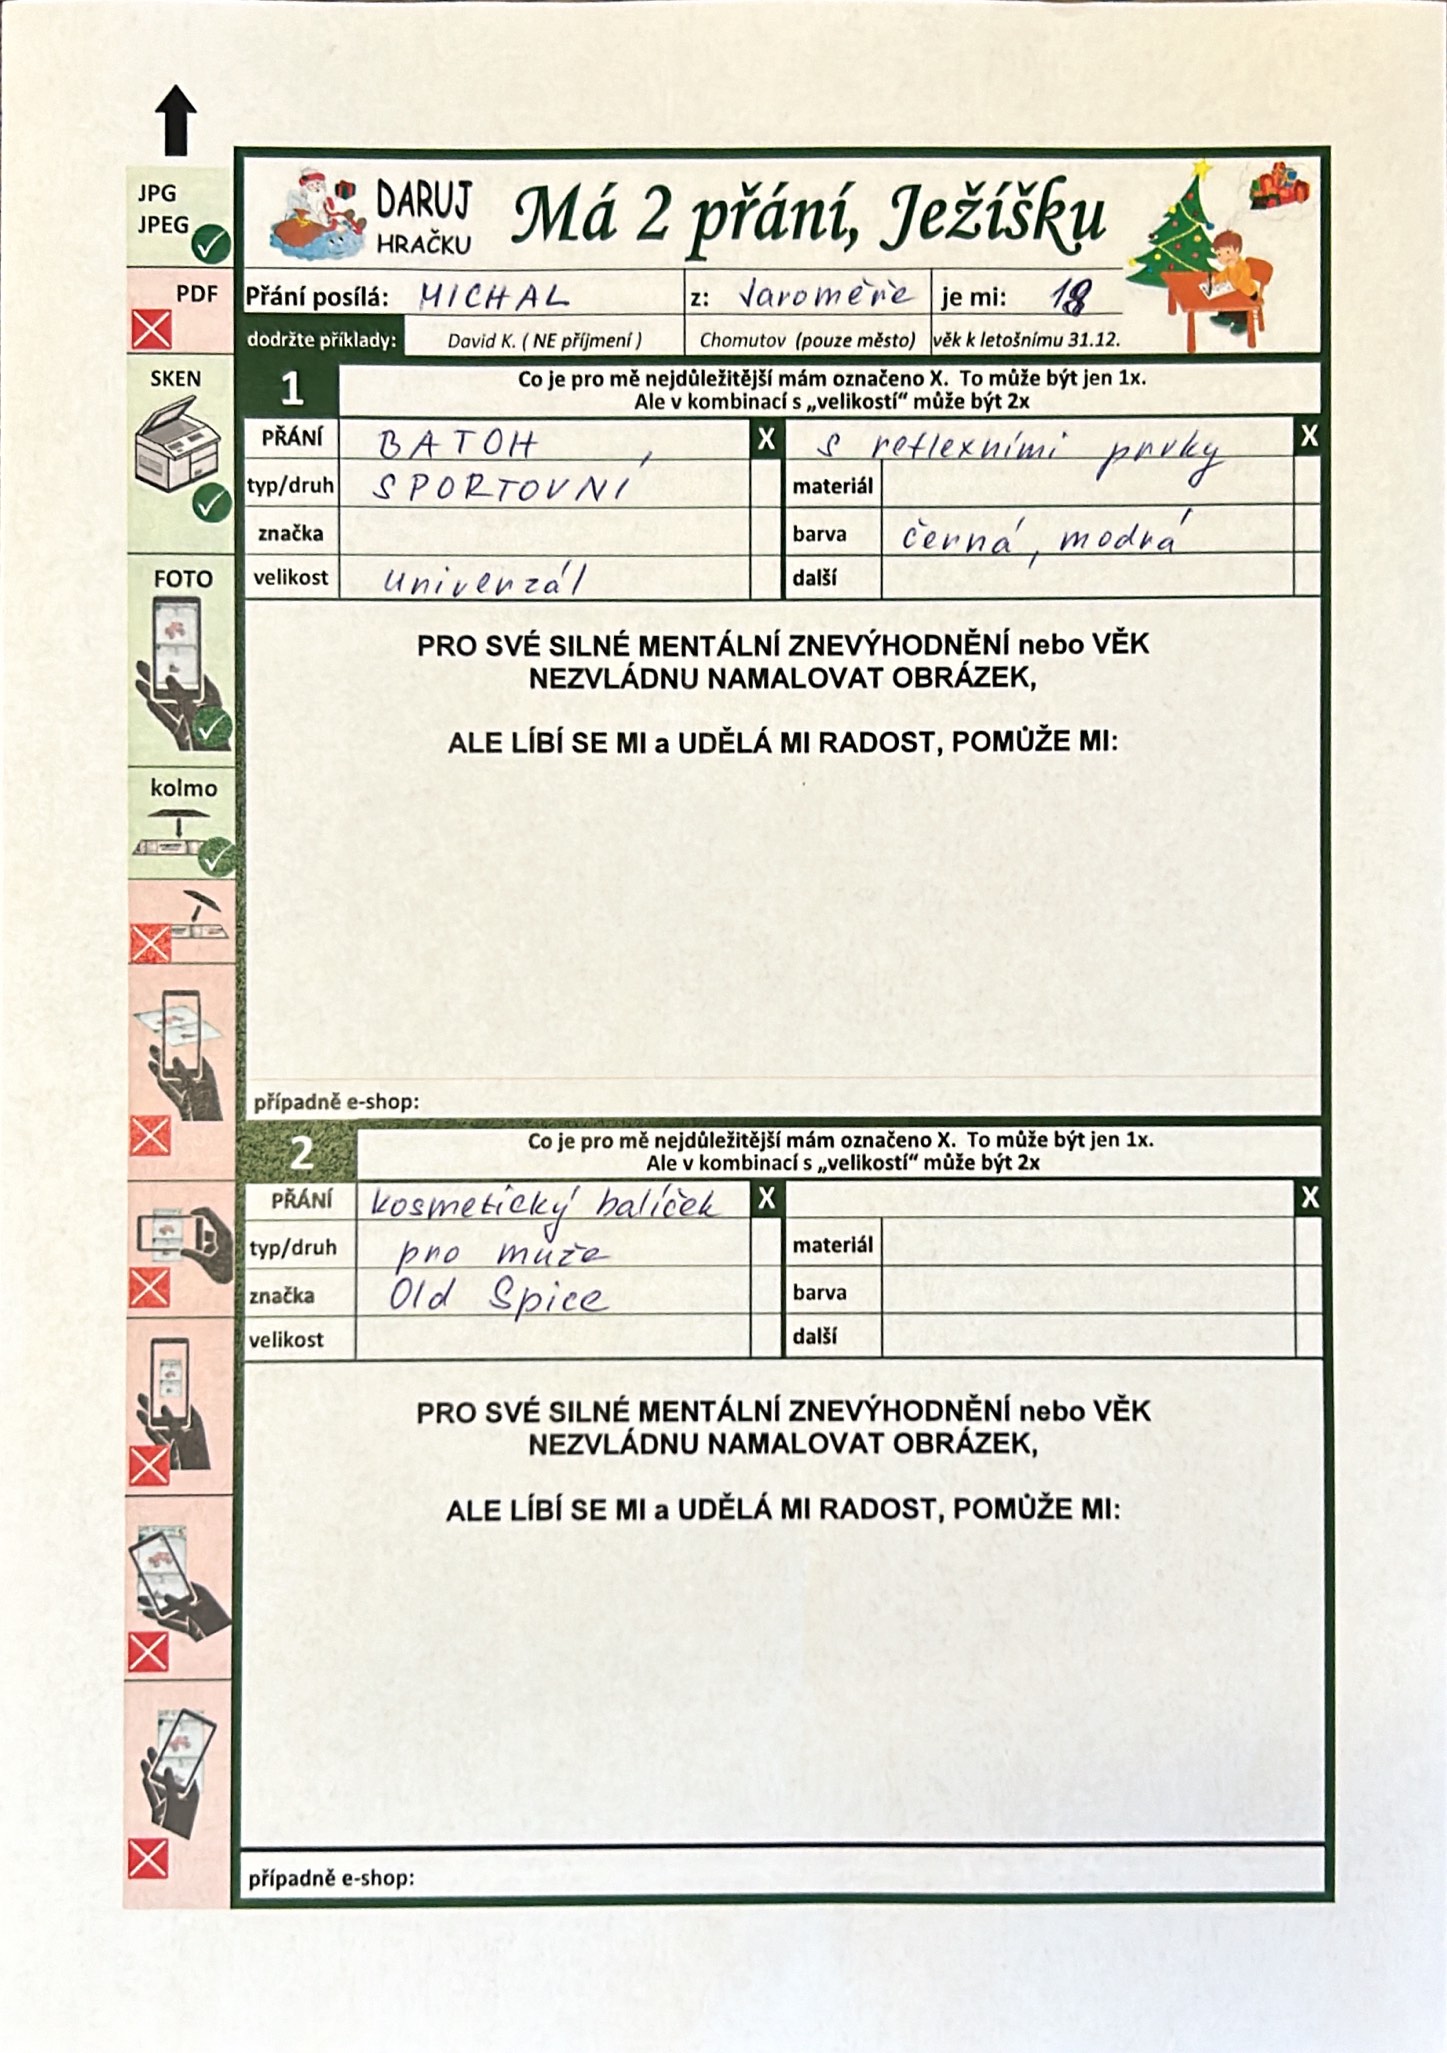 JPG
JPEG
PDF
SKEN
FOTO
kolmo
DARUJ
HRAČKU
Má 2 přání, Ježíšku
Přání posílá: MICHAL z: Jaroměře je mi: 18
dodržte příklady: David K. ( NE příjmení ) Chomutov (pouze město) věk k letošnímu 31.12.
1 Co je pro mě nejdůležitější mám označeno X. To může být jen 1x.
Ale v kombinací s „velikostí“ může být 2x
PŘÁNÍ BATOH , X s reflexními prvky X
typ/druh SPORTOVNÍ materiál
značka barva černá, modrá
velikost univerzál další
PRO SVÉ SILNÉ MENTÁLNÍ ZNEVÝHODNĚNÍ nebo VĚK
NEZVLÁDNU NAMALOVAT OBRÁZEK,
ALE LÍBÍ SE MI a UDĚLÁ MI RADOST, POMŮŽE MI:
případně e-shop:
2 Co je pro mě nejdůležitější mám označeno X. To může být jen 1x.
Ale v kombinací s „velikostí“ může být 2x
PŘÁNÍ kosmetický balíček X X
typ/druh pro muže materiál
značka Old Spice barva
velikost další
PRO SVÉ SILNÉ MENTÁLNÍ ZNEVÝHODNĚNÍ nebo VĚK
NEZVLÁDNU NAMALOVAT OBRÁZEK,
ALE LÍBÍ SE MI a UDĚLÁ MI RADOST, POMŮŽE MI:
případně e-shop: